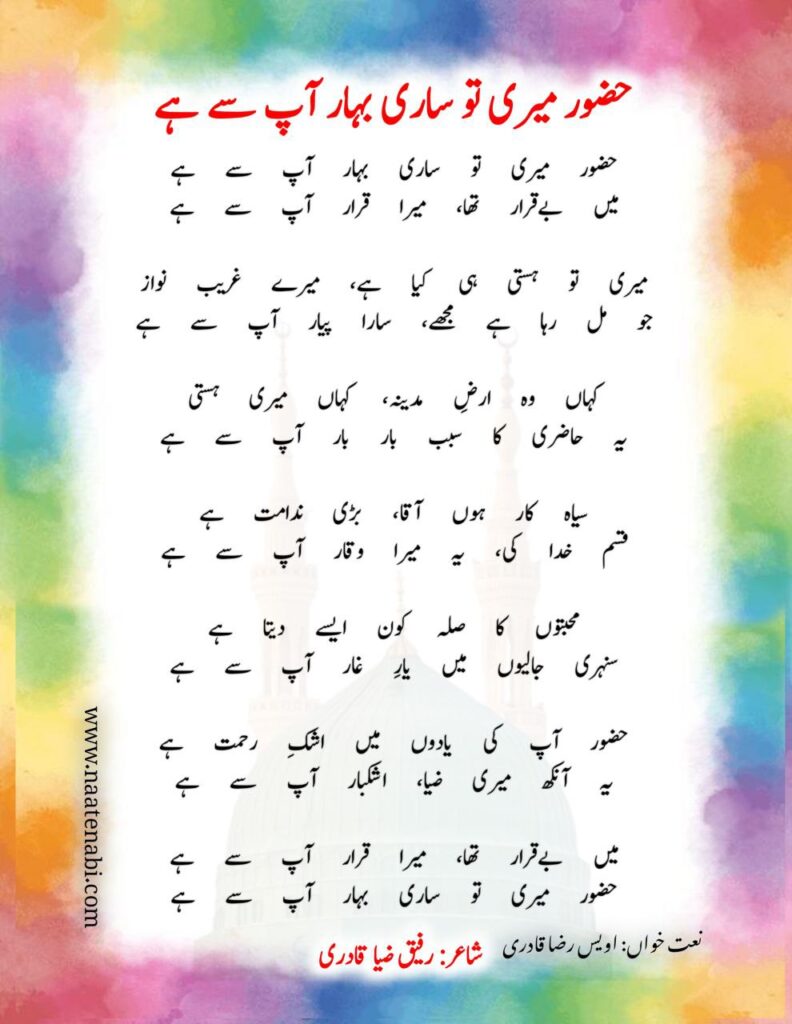 حضور میری تو ساری بہار آپ سے ہے
حضور میری تو ساری بہار آپ سے ہے
میں بےقرار تھا، میرا قرار آپ سے ہے
میری تو ہستی ہی کیا ہے، میرے غریب نواز
جو مل رہا ہے مجھے، سارا پیار آپ سے ہے
کہاں وہ ارضِ مدینہ، کہاں میری ہستی
یہ حاضری کا سبب بار بار آپ سے ہے
سیاہ کار ہوں آقا، بڑی ندامت ہے
قسم خدا کی، یہ میرا وقار آپ سے ہے
محبتوں کا صلہ کون ایسے دیتا ہے
سنہری جالیوں میں یارِ غار آپ سے ہے
حضور آپ کی یادوں میں اشکِ رحمت ہے
یہ آنکھ میری ضیا، اشکبار آپ سے ہے
میں بےقرار تھا، میرا قرار آپ سے ہے
حضور میری تو ساری بہار آپ سے ہے
نعت خواں: اویس رضا قادری
شاعر: رفیق ضیا قادری
www.naatenabi.com